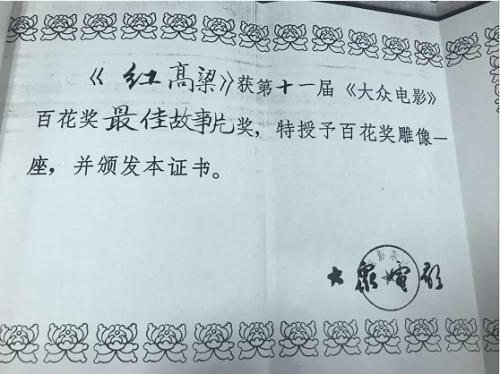 《红高粱》获第十一届《大众电影》
百花奖最佳故事片奖，特授予百花奖雕像一
座，并颁发本证书。
大众电影